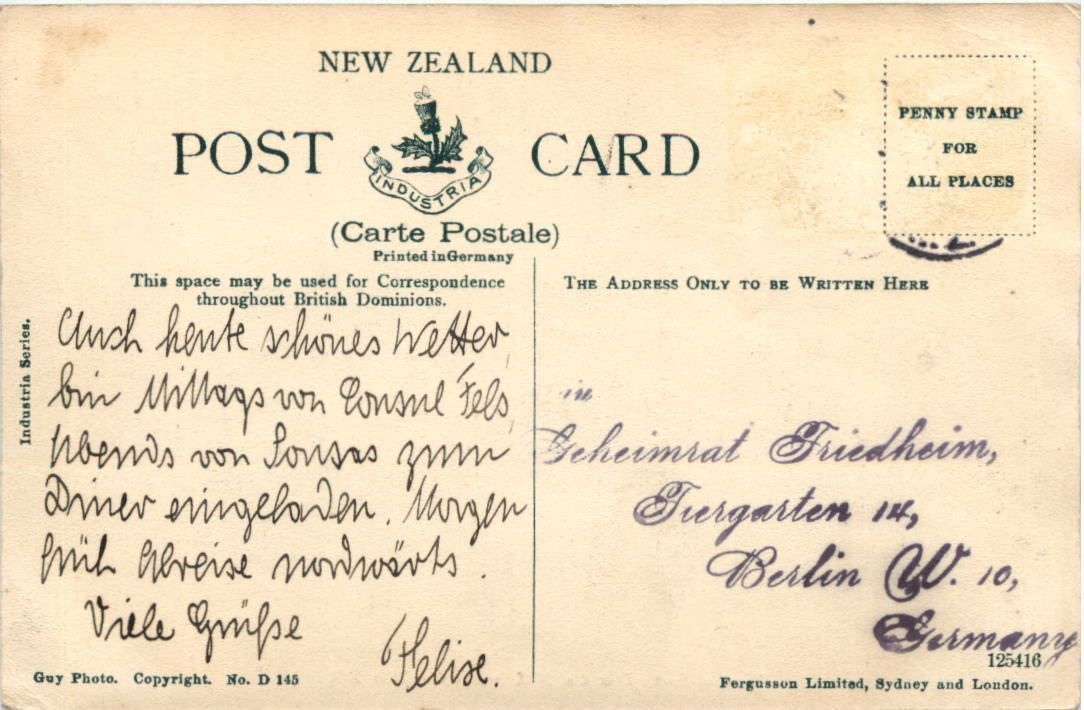 NEW ZEALAND
POST CARD
INDUSTRIA
(Carte Postale)
Printed in Germany
PENNY STAMP
FOR
ALL PLACES
This space may be used for Correspondence
throughout British Dominions.
THE ADDRESS ONLY TO BE WRITTEN HERE
Industria Series.
Auch heute schönes Wetter,
bin Mittags von Consul Fels,
Abends von Sousas zum
Diner eingeladen. Morgen
früh Abreise nordwärts.
Viele Grüße
Felise.
Geheimrat Friedheim,
Tiergarten 14,
Berlin W. 10,
Germany
125416
Guy Photo. Copyright. No. D 145
Fergusson Limited, Sydney and London.